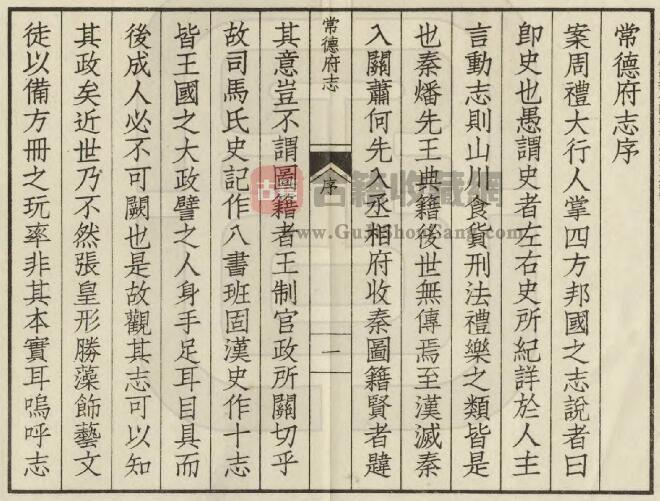 常德府志序
案周禮大行人掌四方邦國之志說者曰
卽史也愚謂史者左右史所紀詳於人主
言動志則山川食貨刑法禮樂之類皆是
也秦燔先王典籍後世無傳焉至漢滅秦
入關蕭何先入丞相府收秦圖籍賢者韙
常德府志
序
一
其意豈不謂圖籍者王制官政所關切乎
故司馬氏史記作八書班固漢史作十志
皆王國之大政譬之人身手足耳目具而
後成人必不可闕也是故觀其志可以知
其政矣近世乃不然張皇形勝藻飾藝文
徒以備方冊之玩率非其本實耳嗚呼志
古籍
古籍收藏網
www.GuJiShouCang.com